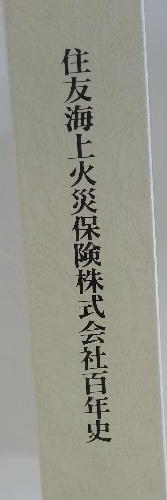 住友海上火災保険株式会社百年史